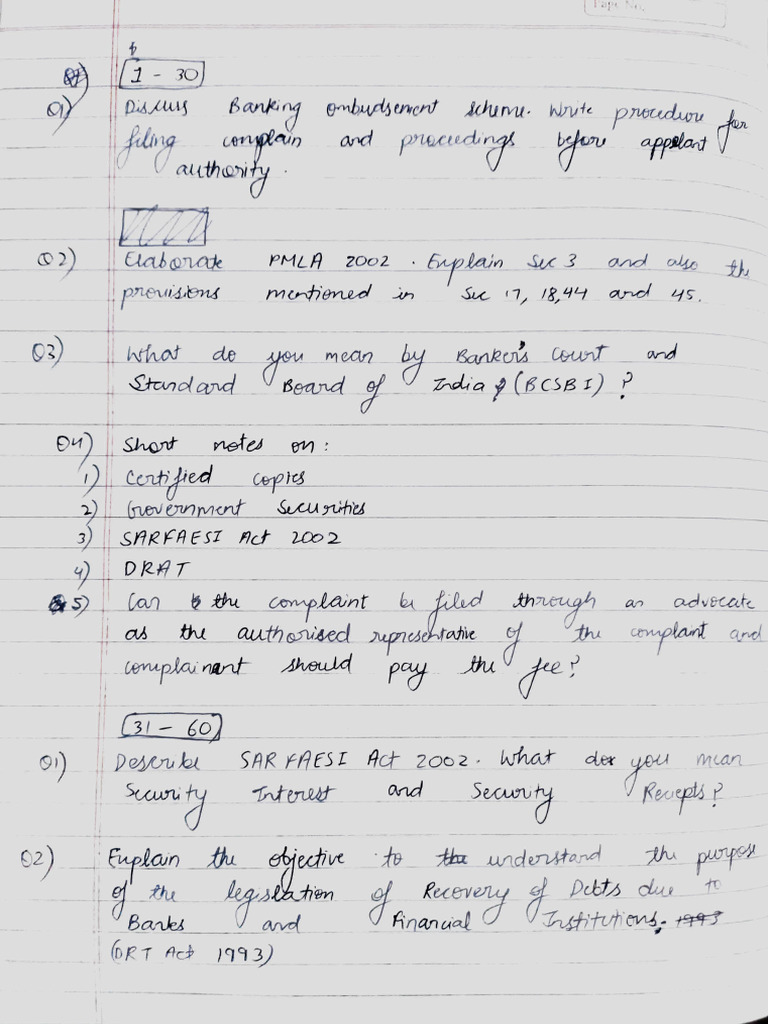 Page No.
1 - 30
Q1) Discuss Banking ombudsement scheme. Write procedure for
filing complain and proceedings before appelant
authority.
Q2) Elaborate PMLA 2002. Explain Sec 3 and also the
provisions mentioned in Sec 17, 18, 44 and 45.
Q3) What do you mean by Banker's Court and
Standard Board of India (BCSBI)?
Q4) Short notes on:
1) Certified copies
2) Government Securities
3) SARFAESI Act 2002
4) DRAT
5) Can the complaint be filed through an advocate
as the authorised representative of the complaint and
complainant should pay the fee?
31 - 60
Q1) Describe SARFAESI Act 2002. What do you mean
Security Interest and Security Reciepts?
Q2) Explain the objective to understand the purpose
of the legislation of Recovery of Debts due to
Banks and Financial Institutions. 1993
(DRT Act 1993)